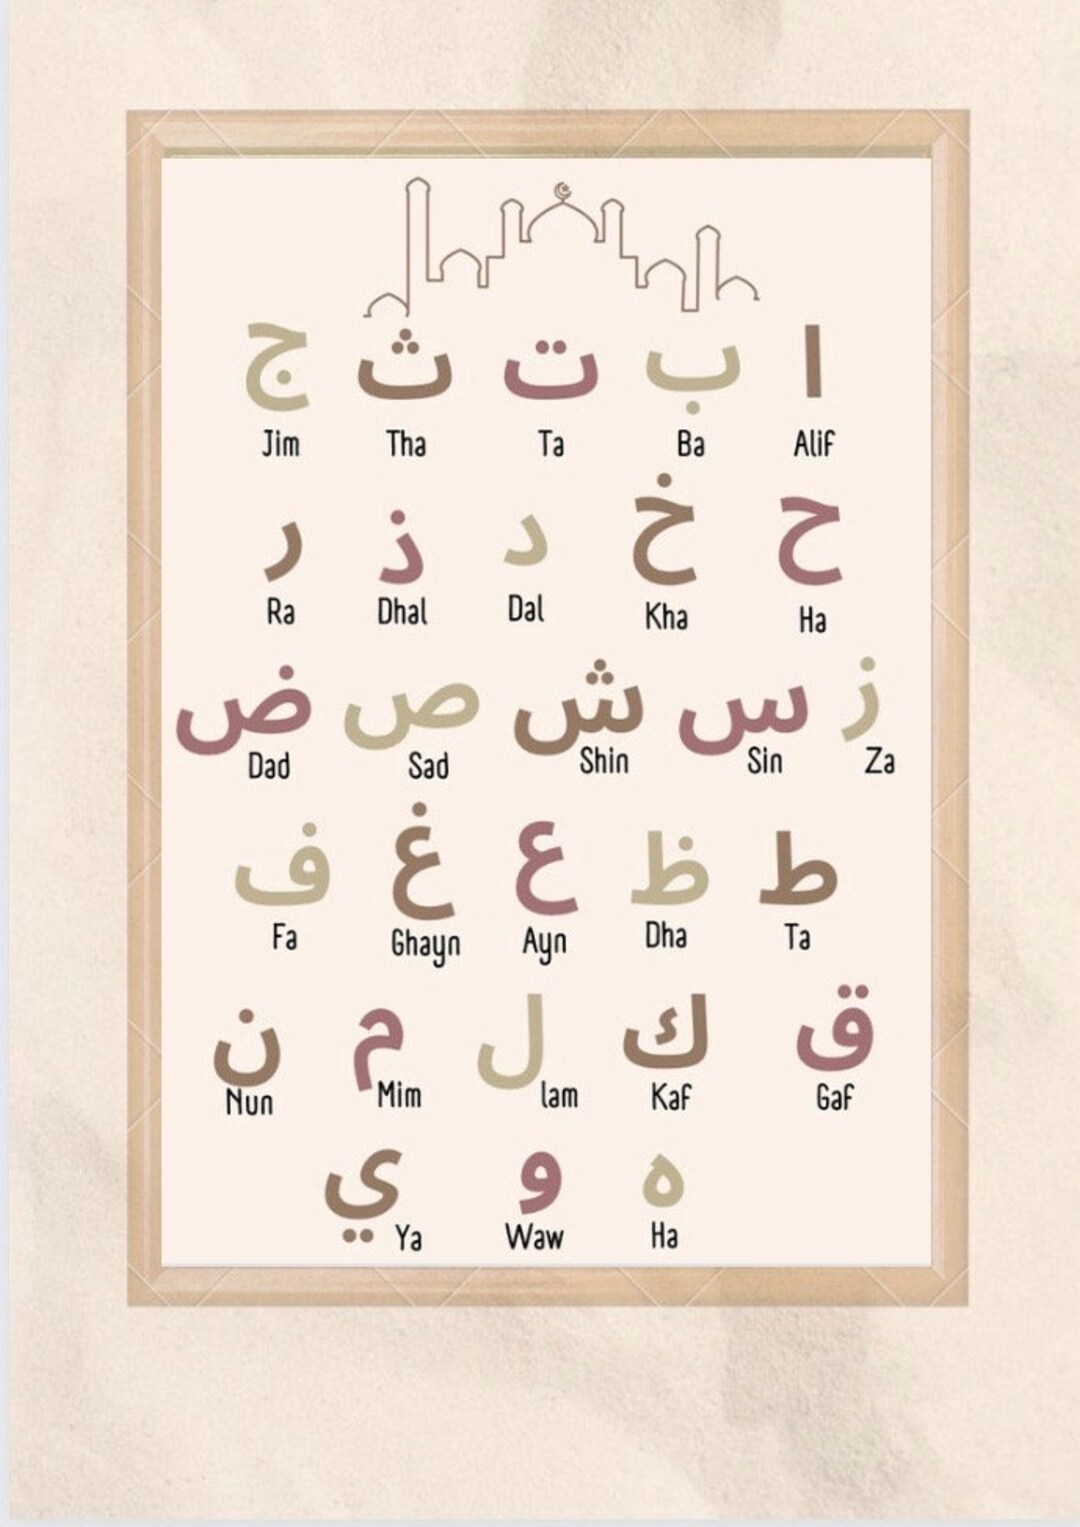 ا ب ت ث ج
Alif Ba Ta Tha Jim
ح خ د ذ ر
Ha Kha Dal Dhal Ra
ز س ش ص ض
Za Sin Shin Sad Dad
ط ظ ع غ ف
Ta Dha Ayn Ghayn Fa
ق ك ل م ن
Gaf Kaf lam Mim Nun
ه و ي
Ha Waw Ya